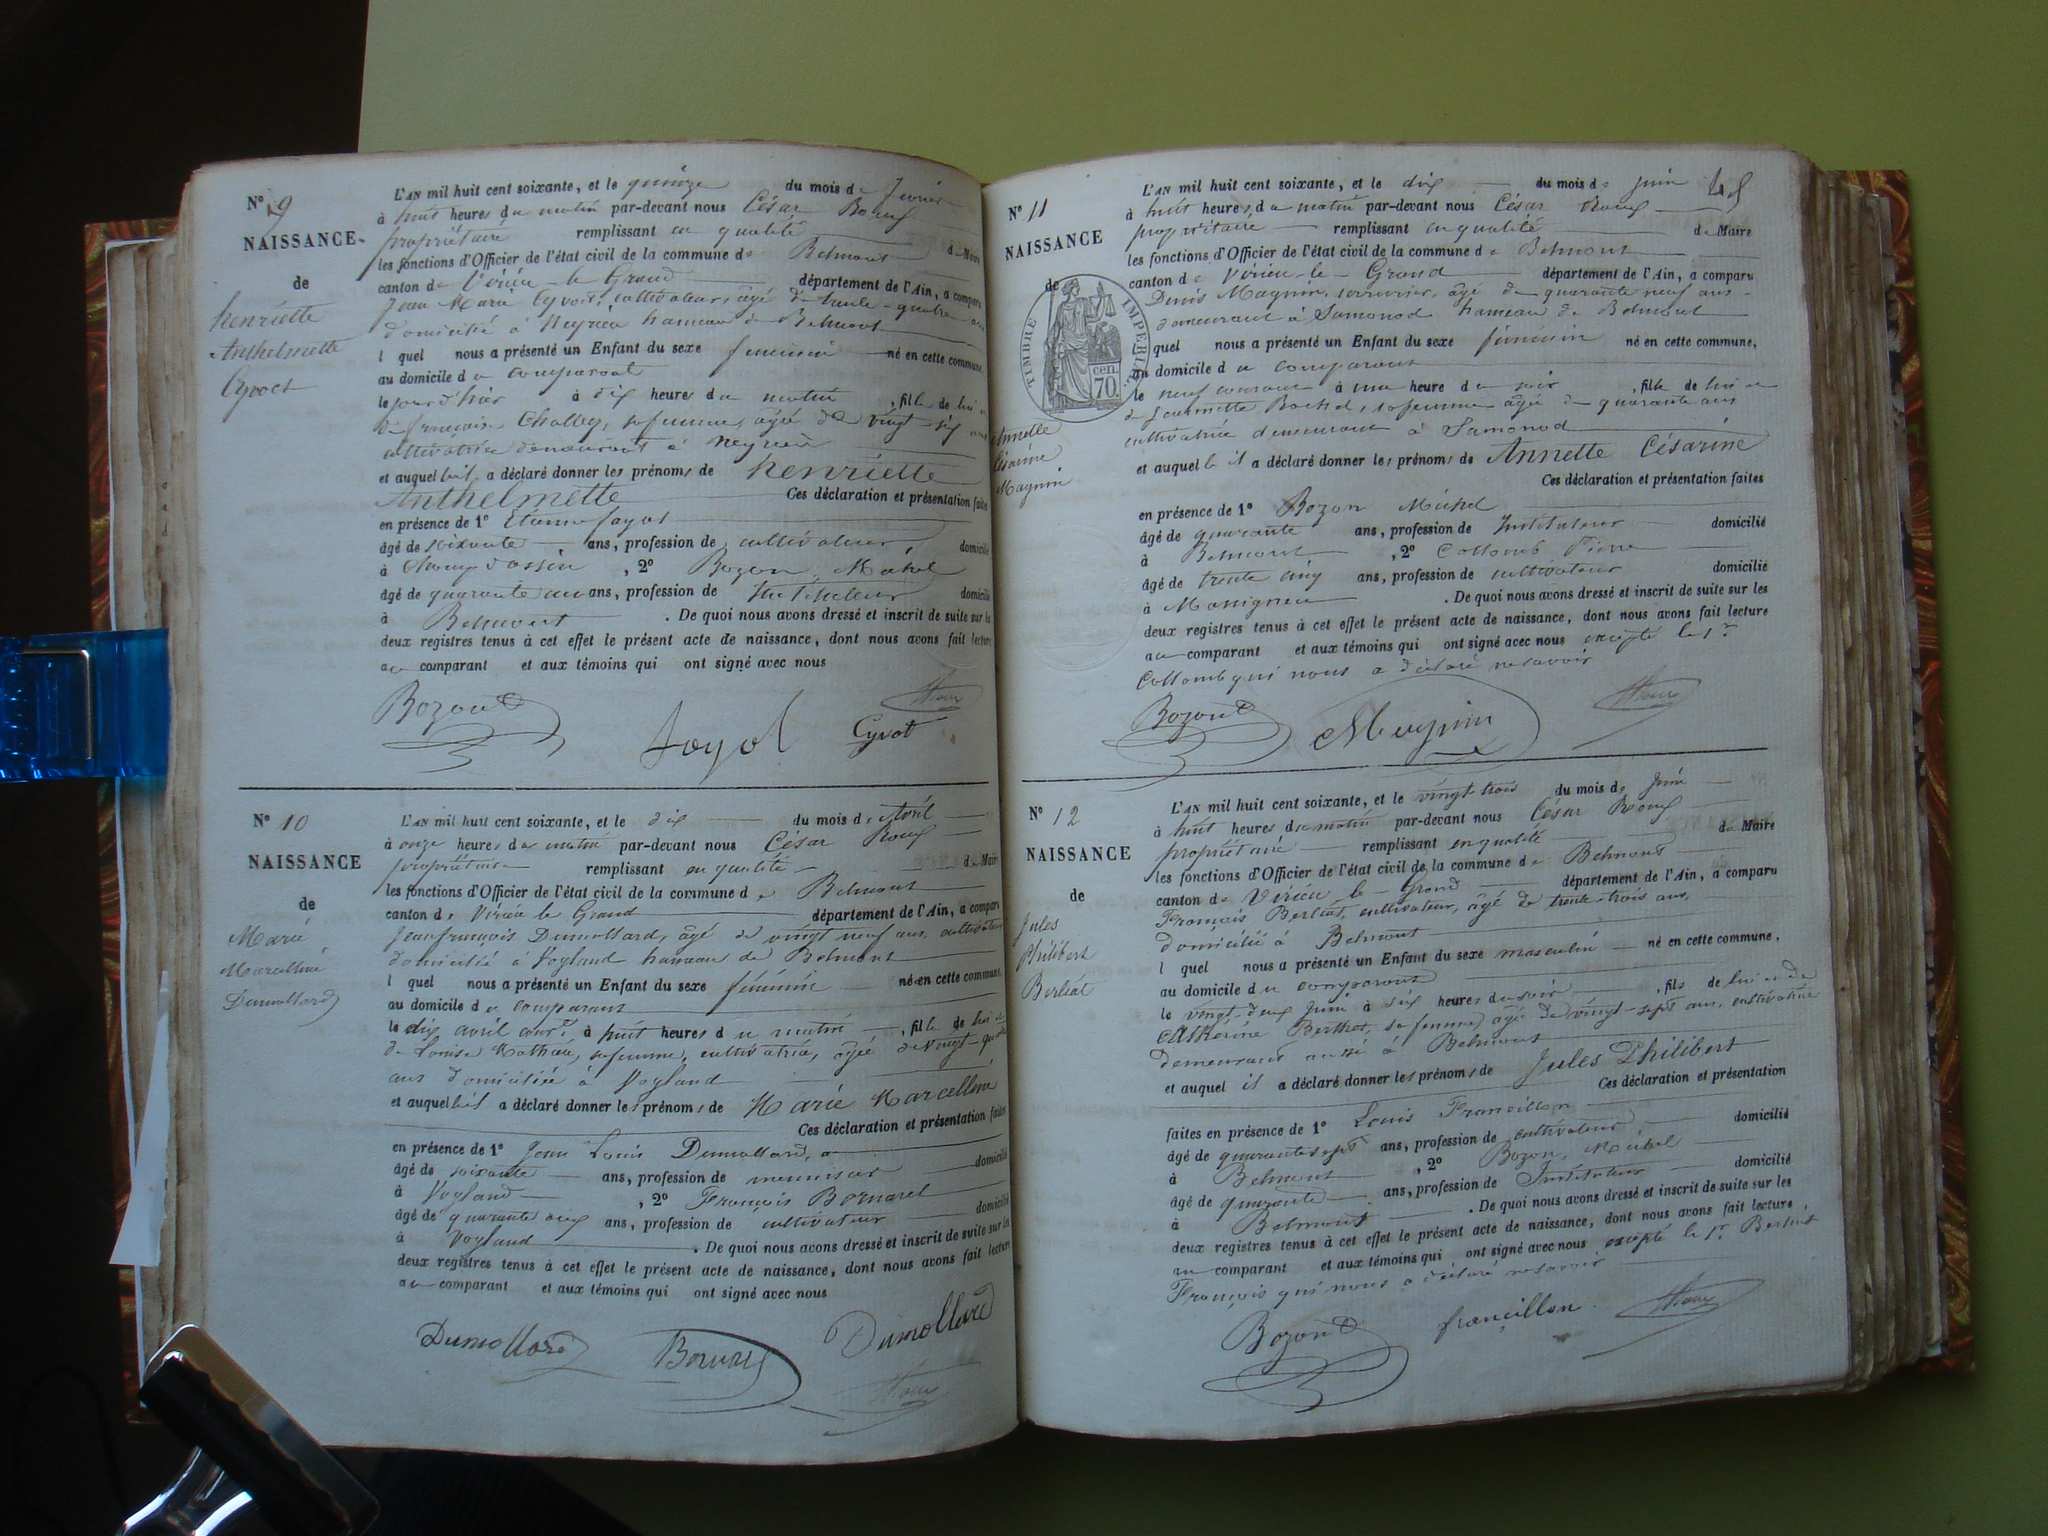 N° 9
NAISSANCE
de
henriette
Anthelmette
Cyvoct
L'AN mil huit cent soixante, et le quinze du mois de
à huit heures du matin par-devant nous César Roux
propriétaire remplissant en qualité de Maire
les fonctions d'Officier de l'état civil de la commune de Belmont
canton de Virieu-le-Grand département de l'Ain, a comparu
Jean Marie cultivateur, âgé de trente-quatre ans
domicilié à Neyrieu hameau de Belmont
l quel nous a présenté un Enfant du sexe féminin né en cette commune,
au domicile du comparant
le jour d'hier à dix heures du matin, fille de lui et
de françoise Challey, sa femme, âgée de vingt-six ans
cultivatrice demeurant à Neyrieu
et auquel il a déclaré donner les prénoms de henriette
Anthelmette Ces déclaration et présentation faites
en présence de 1° Etienne fayol
âgé de soixante ans, profession de cultivateur domicilié
à , 2° Bozon, Michel
âgé de quarante ans, profession de Instituteur domicilié
à Belmont . De quoi nous avons dressé et inscrit de suite sur les
deux registres tenus à cet effet le présent acte de naissance, dont nous avons fait lecture
au comparant et aux témoins qui ont signé avec nous
Bozon
fayol
Cyvot
Roux
N° 10
NAISSANCE
de
Marie
Marcelline
Dumollard
L'AN mil huit cent soixante, et le dix du mois de Avril
à onze heures du matin par-devant nous César Roux
propriétaire remplissant en qualité de Maire
les fonctions d'Officier de l'état civil de la commune de Belmont
canton de Virieu le Grand département de l'Ain, a comparu
Jean françois Dumollard, âgé de vingt neuf ans, cultivateur
domicilié à Vogland hameau de Belmont
l quel nous a présenté un Enfant du sexe féminin né en cette commune
au domicile du comparant
le dix avril cour.t à huit heures du matin, fille de lui et
de Louise Mathieu, sa femme, cultivatrice, âgée de vingt-quatre
ans domiciliée à Vogland
et auquel il a déclaré donner les prénoms de Marie Marcelline
Ces déclaration et présentation faites
en présence de 1° Jean Louis Dumollard,
âgé de soixante ans, profession de menuisier domicilié
à Vogland , 2° François Bornarel
âgé de quarante ans, profession de cultivateur domicilié
à Vogland . De quoi nous avons dressé et inscrit de suite sur les
deux registres tenus à cet effet le présent acte de naissance, dont nous avons fait lecture
au comparant et aux témoins qui ont signé avec nous
Dumollard
Dumollard
Roux
48
N° 11
NAISSANCE
de
TIMBRE IMPERIAL
70 cen.
Annette
Césarine
Magnin
L'AN mil huit cent soixante, et le dix du mois de juin
à huit heures du matin par-devant nous César Roux
propriétaire remplissant en qualité de Maire
les fonctions d'Officier de l'état civil de la commune de Belmont
canton de Virieu-le-Grand département de l'Ain, a comparu
Denis Magnin, serrurier, âgé de quarante neuf ans
demeurant à Samonod hameau de Belmont
quel nous a présenté un Enfant du sexe féminin né en cette commune,
au domicile du comparant
le neuf courant à une heure du soir, fille de lui et
de Jeannette Rochel, sa femme âgée de quarante ans
cultivatrice demeurant à Samonod
et auquel il a déclaré donner les prénoms de Annette Césarine
Ces déclaration et présentation faites
en présence de 1° Bozon Michel
âgé de quarante ans, profession de Instituteur domicilié
à Belmont , 2° Collomb Pierre
âgé de trente cinq ans, profession de cultivateur domicilié
à Massignieu . De quoi nous avons dressé et inscrit de suite sur les
deux registres tenus à cet effet le présent acte de naissance, dont nous avons fait lecture
au comparant et aux témoins qui ont signé avec nous excepté le 
Collomb qui nous a déclaré ne savoir
Bozon
Magnin
Roux
N° 12
NAISSANCE
de
Jules
Philibert
Berliat
L'AN mil huit cent soixante, et le vingt-trois du mois de Juin
à huit heures du matin par-devant nous César Roux
propriétaire remplissant en qualité de Maire
les fonctions d'Officier de l'état civil de la commune de Belmont
canton de Virieu-le-Grand département de l'Ain, a comparu
François Berliat, cultivateur, âgé de trente-trois ans,
domicilié à Belmont
l quel nous a présenté un Enfant du sexe masculin né en cette commune,
au domicile du comparant
le vingt-deux Juin à six heures du soir, fils de lui et de
Catherine Berthet, sa femme, âgée de vingt-sept ans, cultivatrice
demeurant aussi à Belmont
et auquel il a déclaré donner les prénoms de Jules Philibert
Ces déclaration et présentation
faites en présence de 1° Louis Francillon
âgé de quarante sept ans, profession de cultivateur domicilié
à Belmont , 2° Bozon, Michel
âgé de quarante ans, profession de Instituteur domicilié
à Belmont . De quoi nous avons dressé et inscrit de suite sur les
deux registres tenus à cet effet le présent acte de naissance, dont nous avons fait lecture
au comparant et aux témoins qui ont signé avec nous excepté le 1.r Berliat
François qui nous a déclaré ne savoir
Bozon
francillon
Roux